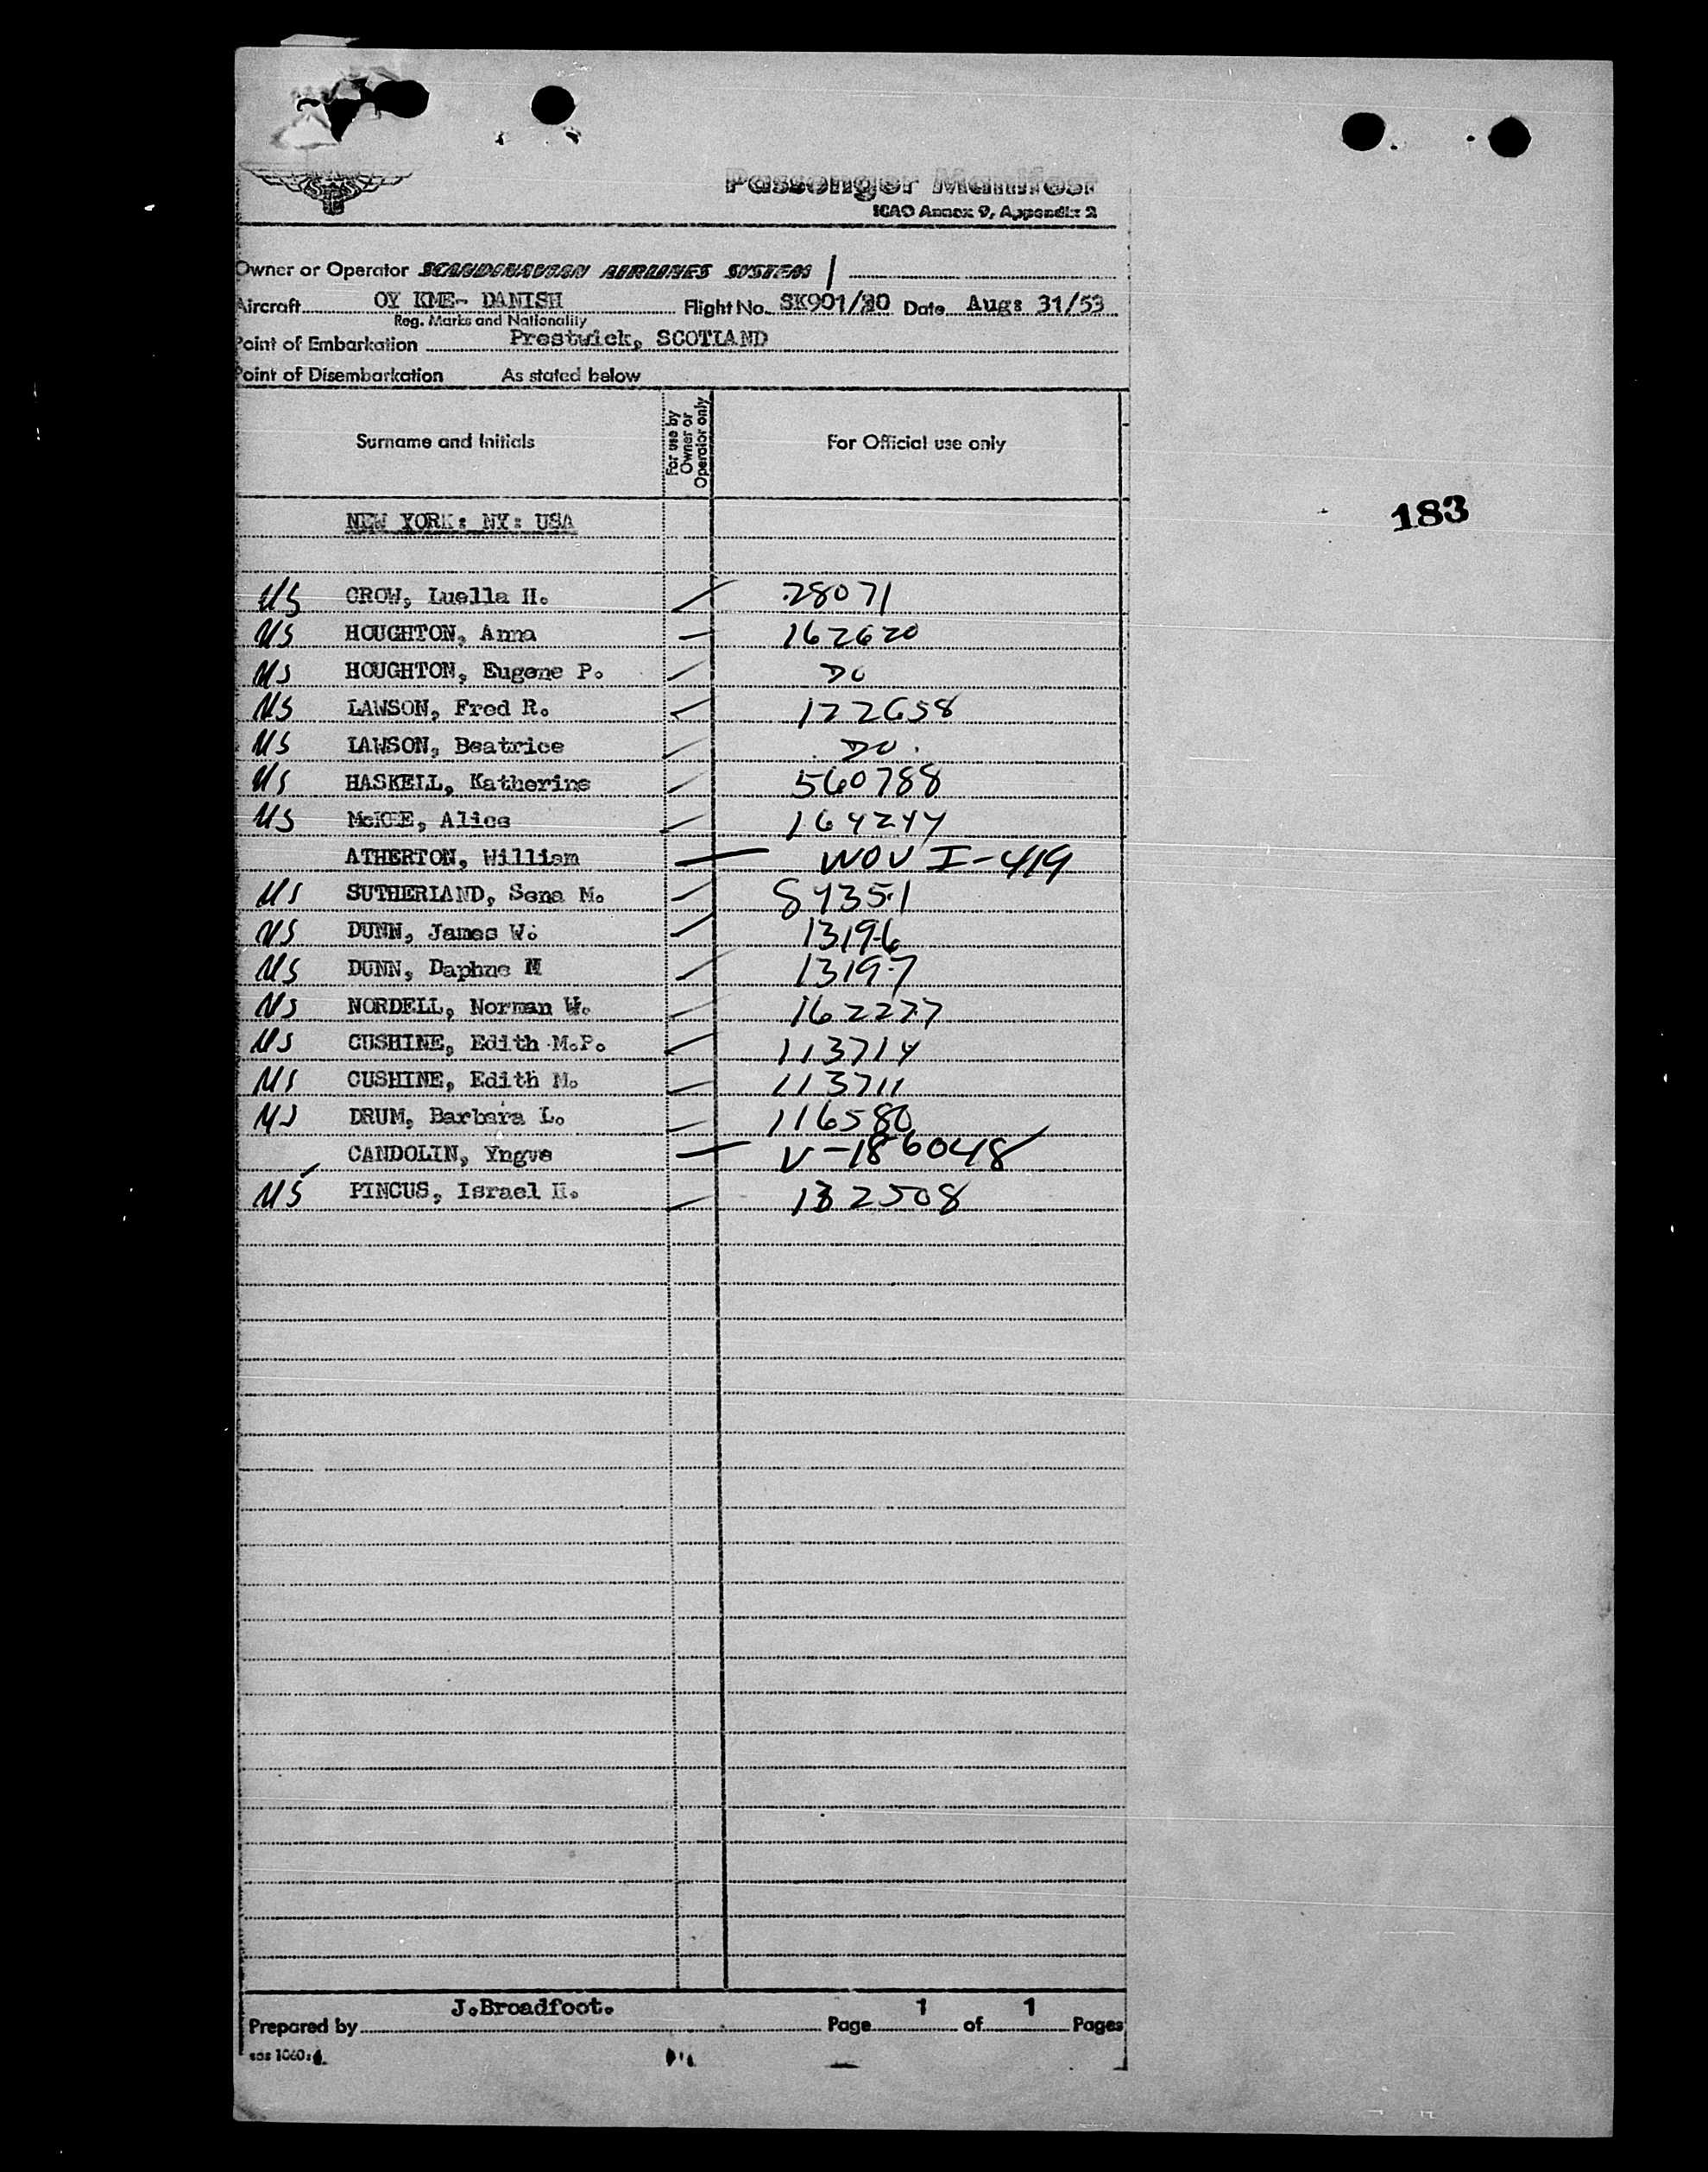 SAS
Passenger Manifest
ICAO Annex 9, Appendix 2
Owner or Operator SCANDINAVIAN AIRLINES SYSTEM
Aircraft OY KME- DANISH Flight No. SK901/30 Date Aug: 31/53
Reg. Marks and Nationality
Point of Embarkation Prestwick, SCOTLAND
Point of Disembarkation As stated below
Surname and Initials For use by Owner or Operator only For Official use only
NEW YORK: NY: USA
183
US CROW, Luella H. 28071
US HOUGHTON, Anna 162620
US HOUGHTON, Eugene P. DO
US LAWSON, Fred R. 122658
US LAWSON, Beatrice DO.
US HASKELL, Katherine 560788
US McKEE, Alice 164244
ATHERTON, William WOV I-419
US SUTHERLAND, Sena M. 84351
US DUNN, James W. 13196
US DUNN, Daphne M 13197
US NORDELL, Norman W. 162277
US CUSHINE, Edith M.P. 113714
US CUSHINE, Edith M. 113711
US DRUM, Barbara L. 116580
CANDOLIN, Yngve V-186048
US PINCUS, Israel H. 132508
J.Broadfoot.
Prepared by Page 1 of 1 Pages